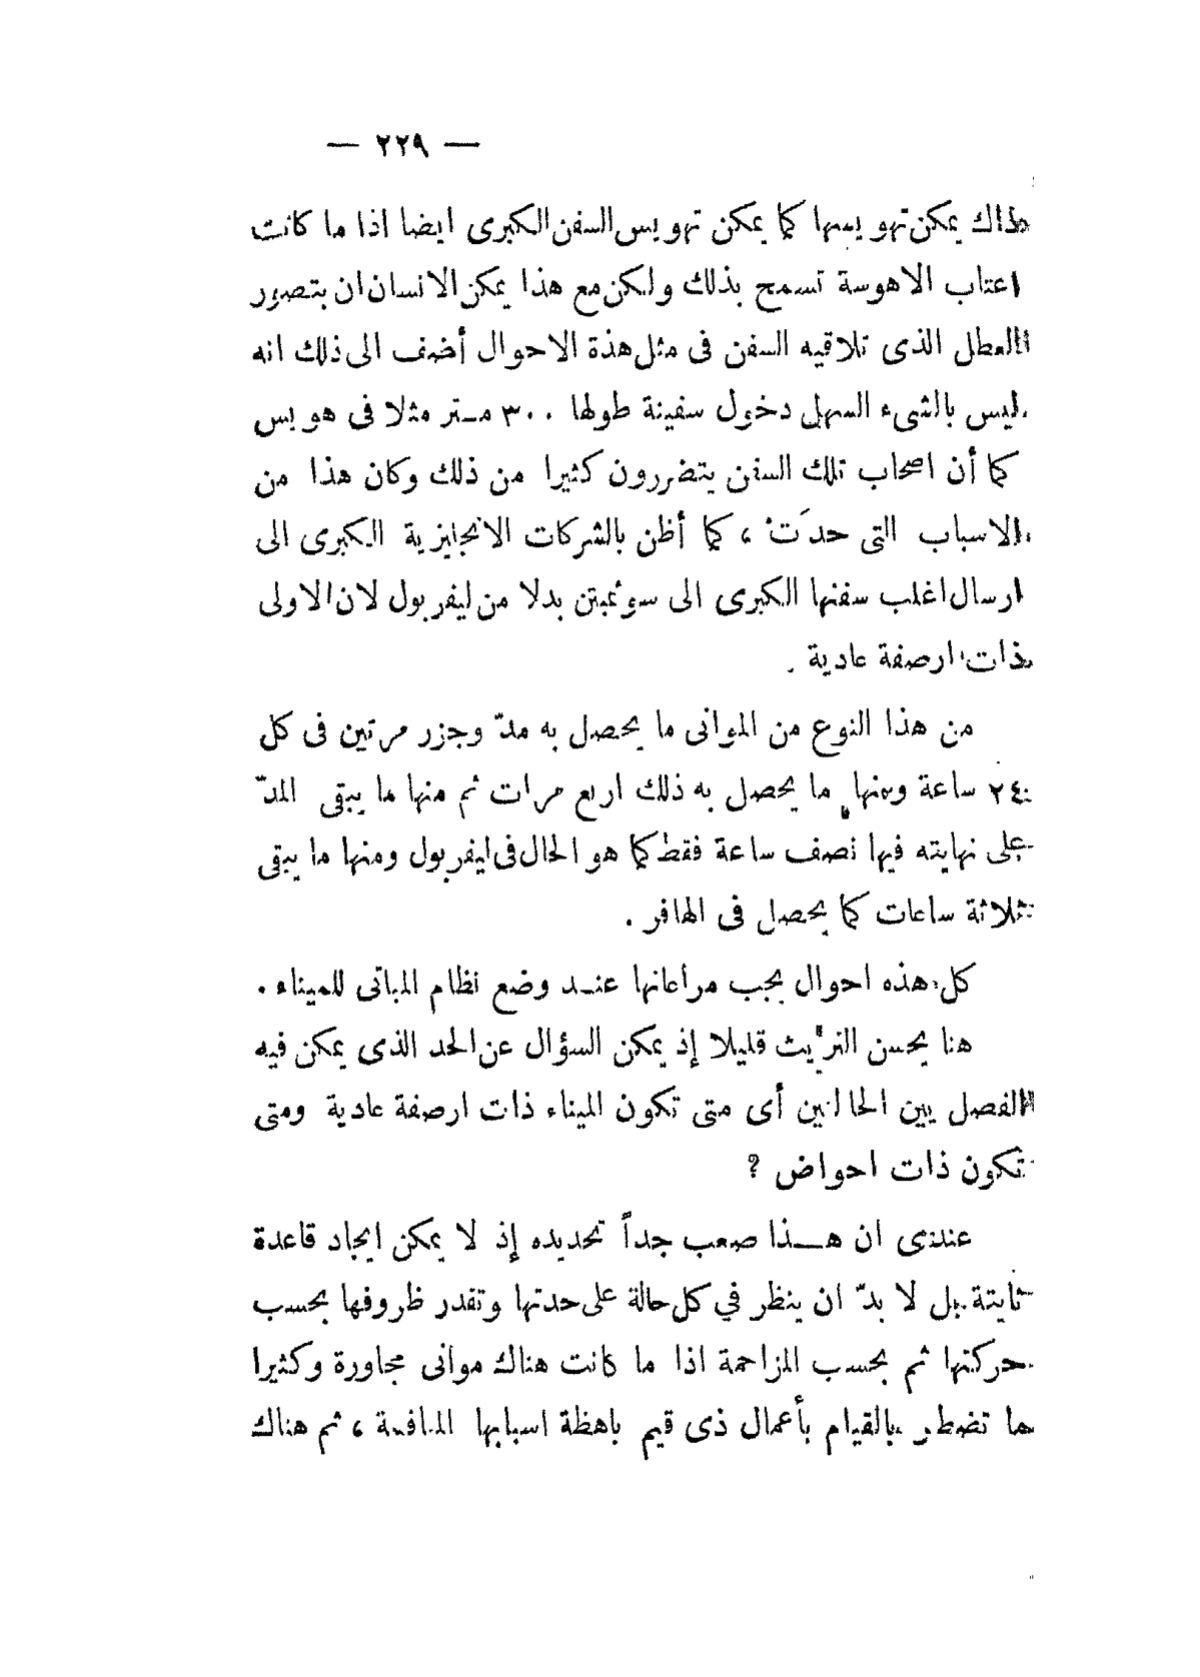 — ٢٢٩ —
هذاك يمكن تهويسها كما يمكن تهويس السفن الكبرى ايضا اذا ما كانت
اعتاب الاهوسة تسمح بذلك ولكن مع هذا يمكن الانسان ان يتصور
العطل الذى تلاقيه السفن فى مثل هذة الاحوال أضف الى ذلك انه
ليس بالشىء السهل دخول سفينة طولها ٣٠٠ متر مثلا فى هويس
كما أن اصحاب تلك السفن يتضررون كثيرا من ذلك وكان هذا من
الاسباب التى حدَت ، كما أظن بالشركات الانجليزية الكبرى الى
ارسال اغلب سفنها الكبرى الى سوثمبتن بدلا من ليفربول لان الاولى
ذات ارصفة عادية .
من هذا النوع من الموانى ما يحصل به مدّ وجزر مرتين فى كل
٢٤ ساعة ومنها ما يحصل به ذلك اربع مرات ثم منها ما يبقى المدّ
على نهايته فيها نصف ساعة فقط كما هو الحال فى ليفربول ومنها ما يبقى
ثلاثة ساعات كما يحصل فى الهافر .
كل هذه احوال يجب مراعاتها عند وضع نظام المبانى للميناء .
هنا يحسن التريث قليلا إذ يمكن السؤال عن الحد الذى يمكن فيه
الفصل بين الحالتين أى متى تكون الميناء ذات ارصفة عادية ومتى
تكون ذات احواض ؟
عندى ان هذا صعب جداً تحديده إذ لا يمكن ايجاد قاعدة
ثابتة بل لا بدّ ان ينظر في كل حالة على حدتها وتقدر ظروفها بحسب
حركتها ثم بحسب المزاحمة اذا ما كانت هناك موانى مجاورة وكثيرا
ما تضطر بالقيام بأعمال ذى قيم باهظة اسبابها المنافسة ، ثم هناك